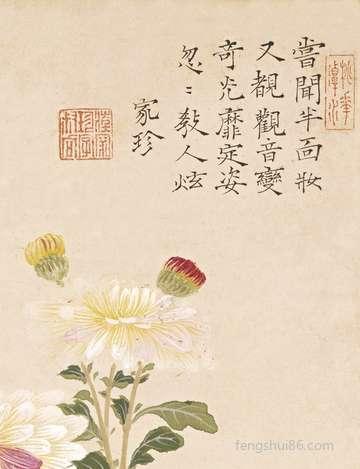 嘗聞半面妝
又覩觀音變
奇光靡定姿
忽〻教人炫
家珍
fengshui86.com